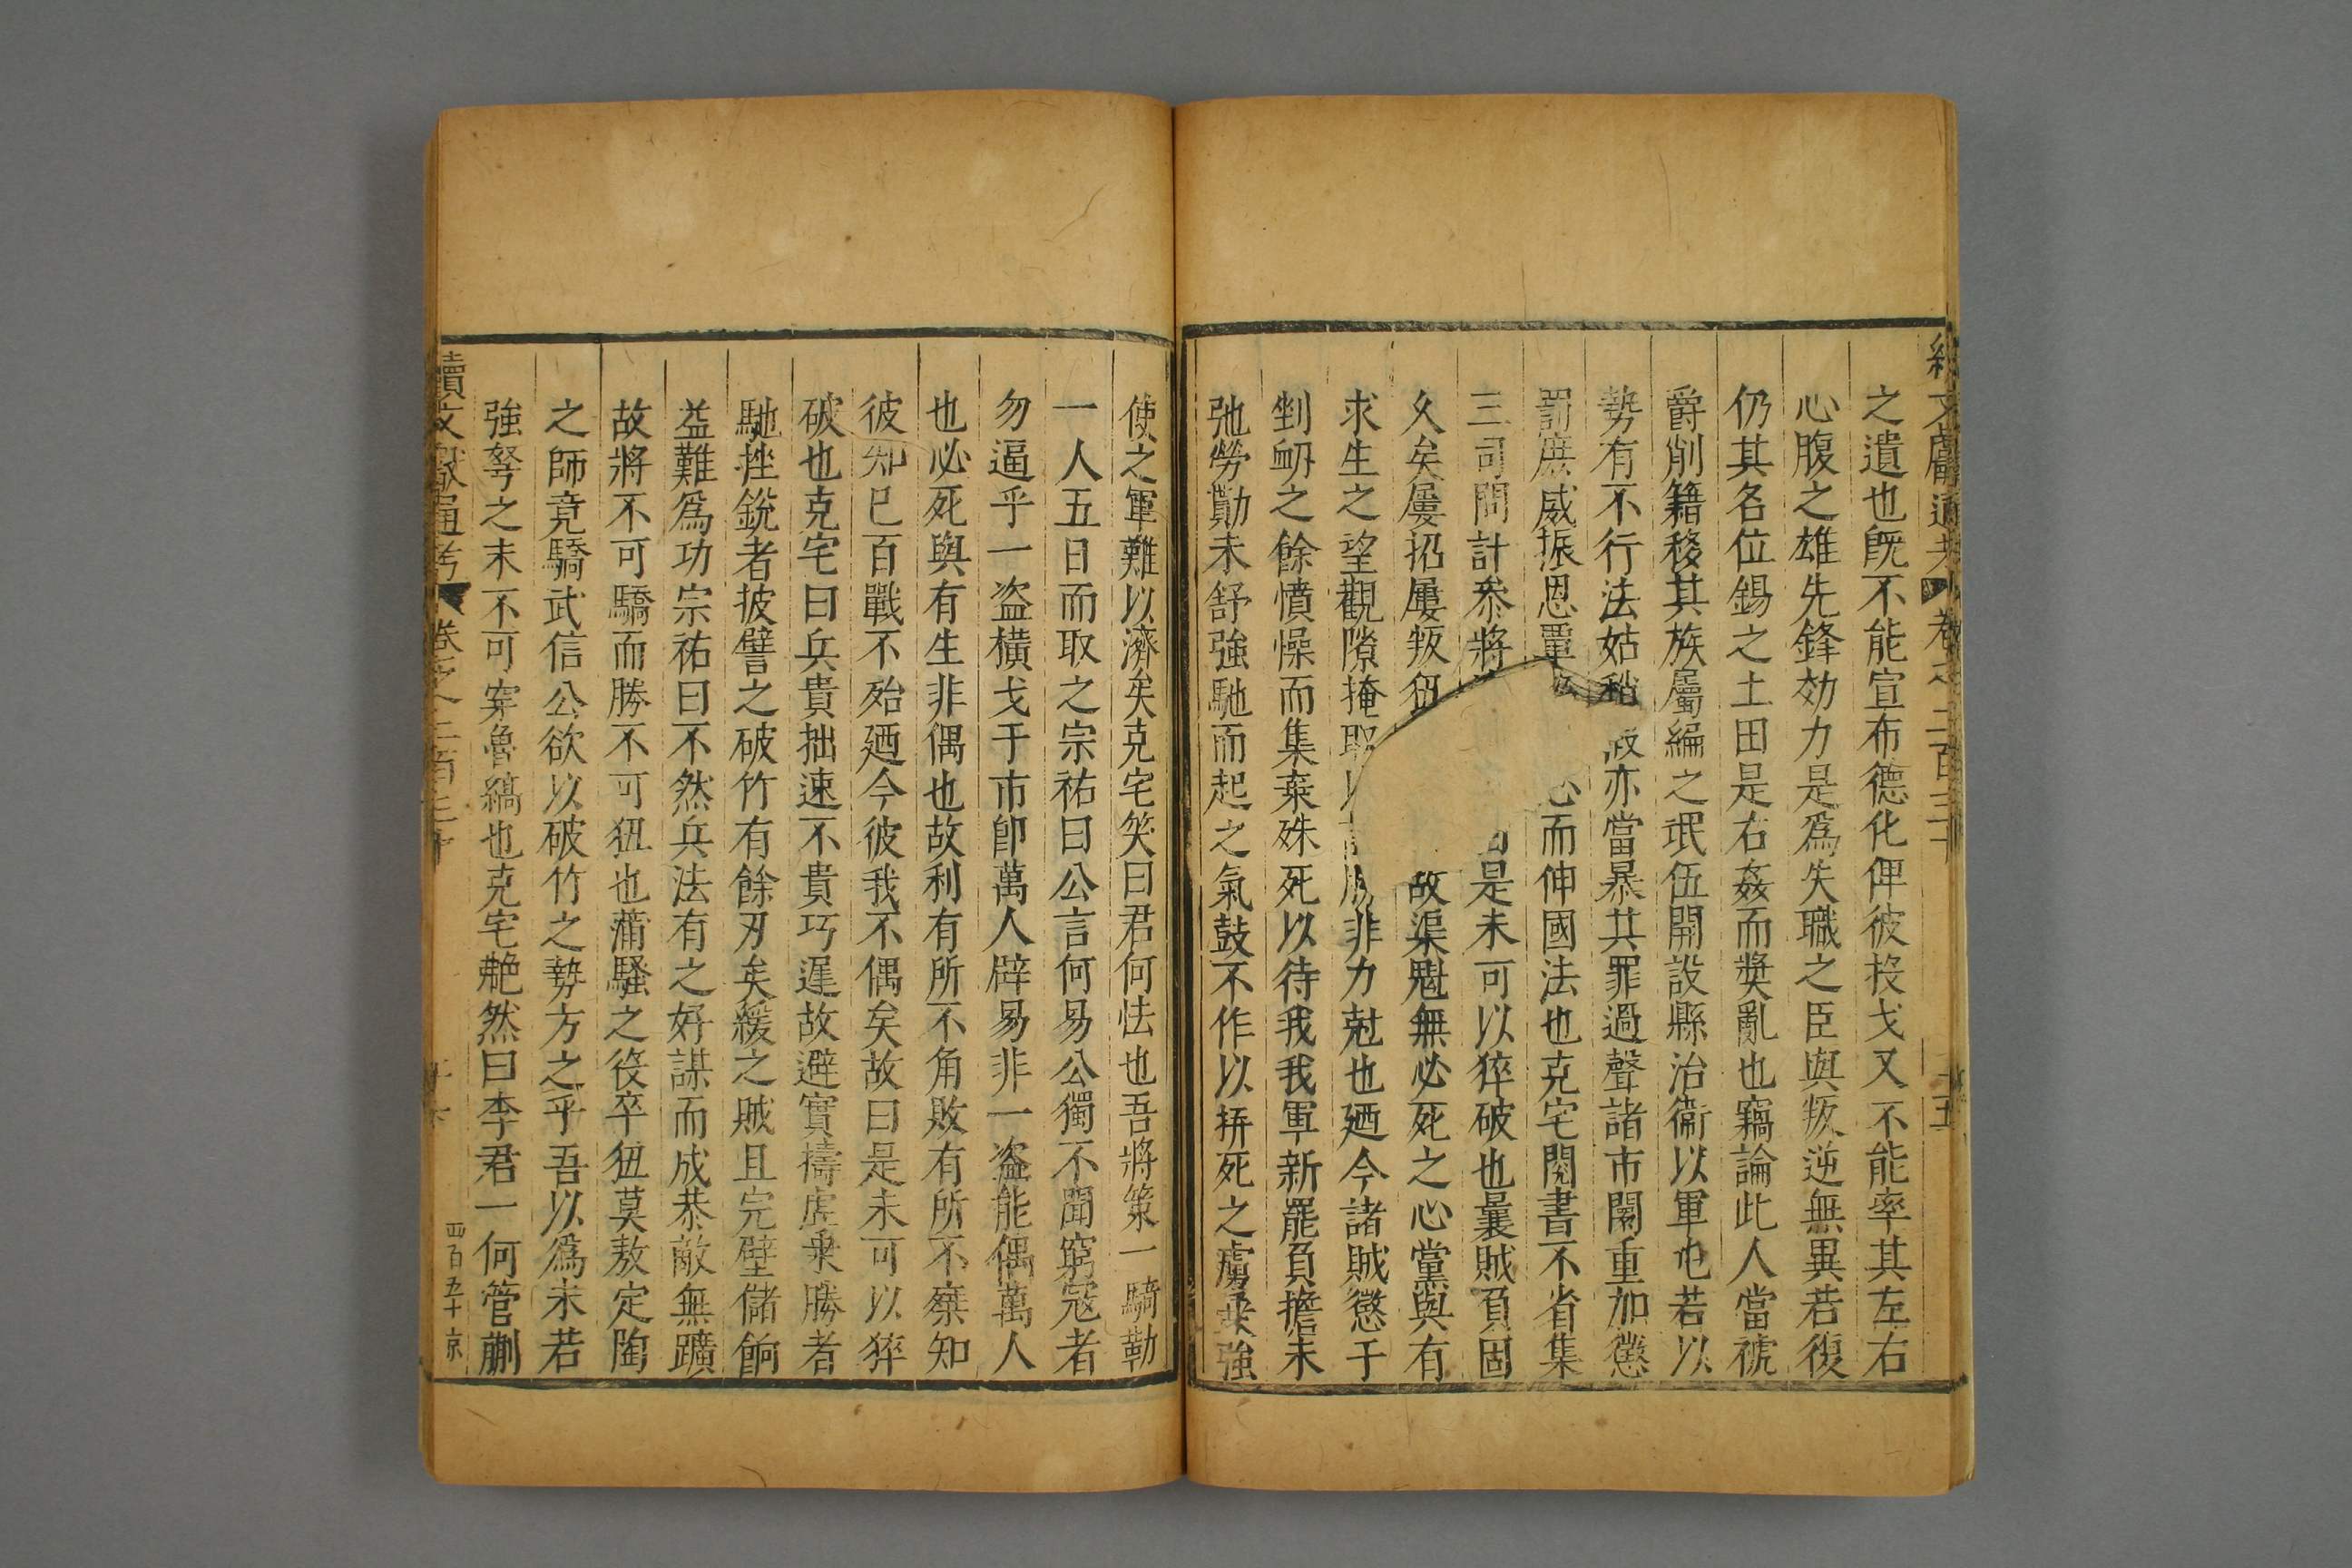 文獻通考 卷之二百三十
之遺也旣不能宣布德化俾彼投戈又不能率其左右
心腹之雄先鋒効力是爲失職之臣與叛逆無異若復
仍其名位錫之土田是右姦而奬亂也竊論此人當褫
爵削籍移其族屬編之氓伍開設縣治衛以軍屯若以
勢有不行法姑稍 亦當暴其罪過聲諸市闤重加懲
罰庶威振恩覃 而伸國法也克宅閱書不省集
三司問計叅將 是未可以猝破也曩賊負固
久矣屢招屢叛狃 故渠魁無必死之心黨與有
求生之望觀隙掩取 非力尅也廼今諸賊懲于
剉衂之餘憤懆而集棄殊死以待我我軍新罷負擔未
弛勞勩未舒強馳而起之氣鼓不作以拼死之虜乗強
使之軍難以濟矣克宅笑曰君何怯也吾將策一騎勒
一人五日而取之宗祐曰公言何易公獨不聞窮寇者
勿逼乎一盗橫戈于市卽萬人辟易非一盗能偶萬人
也必死與有生非偶也故利有所不角敗有所不察知
彼知已百戰不殆廼今彼我不偶矣故曰是未可以猝
破也克宅曰兵貴拙速不貴巧遲故避實擣虛乗勝者
馳挫銳者披譬之破竹有餘刃矣緩之賊且完壁儲餉
益難爲功宗祐曰不然兵法有之好謀而成恭敵無曠
故將不可驕而勝不可狃也蒲騷之役卒狃莫敖定陶
之師竟驕武信公欲以破竹之勢方之乎吾以爲未若
強弩之末不可穿魯縞也克宅艴然曰李君一何管蒯
續文獻通考 卷之二百三十
四百五十 京